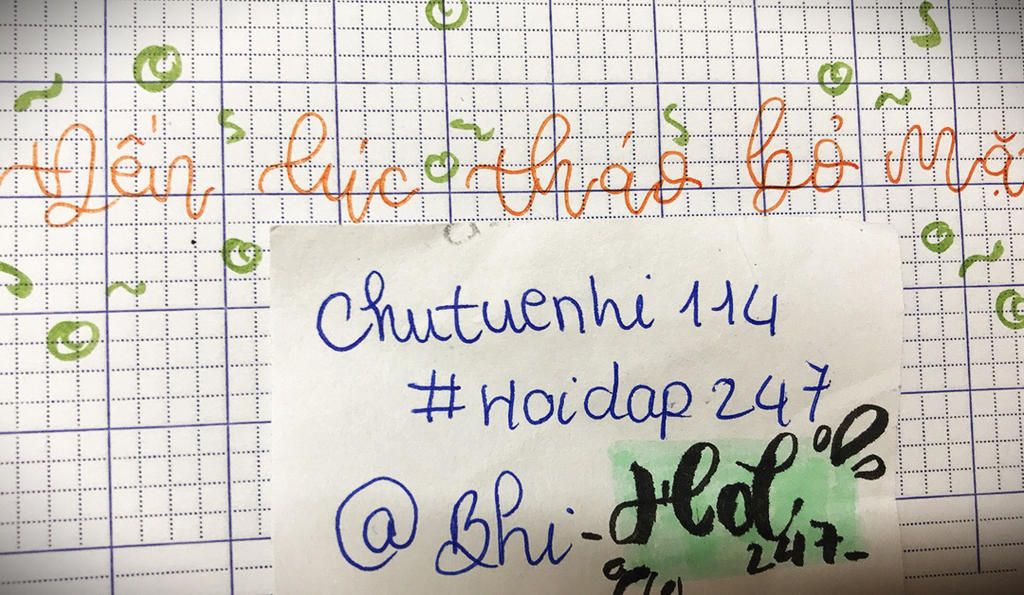 Đến lúc tháo bỏ mặ
Chutuenhi 114
#Hoidap247
@Bhi-
247-